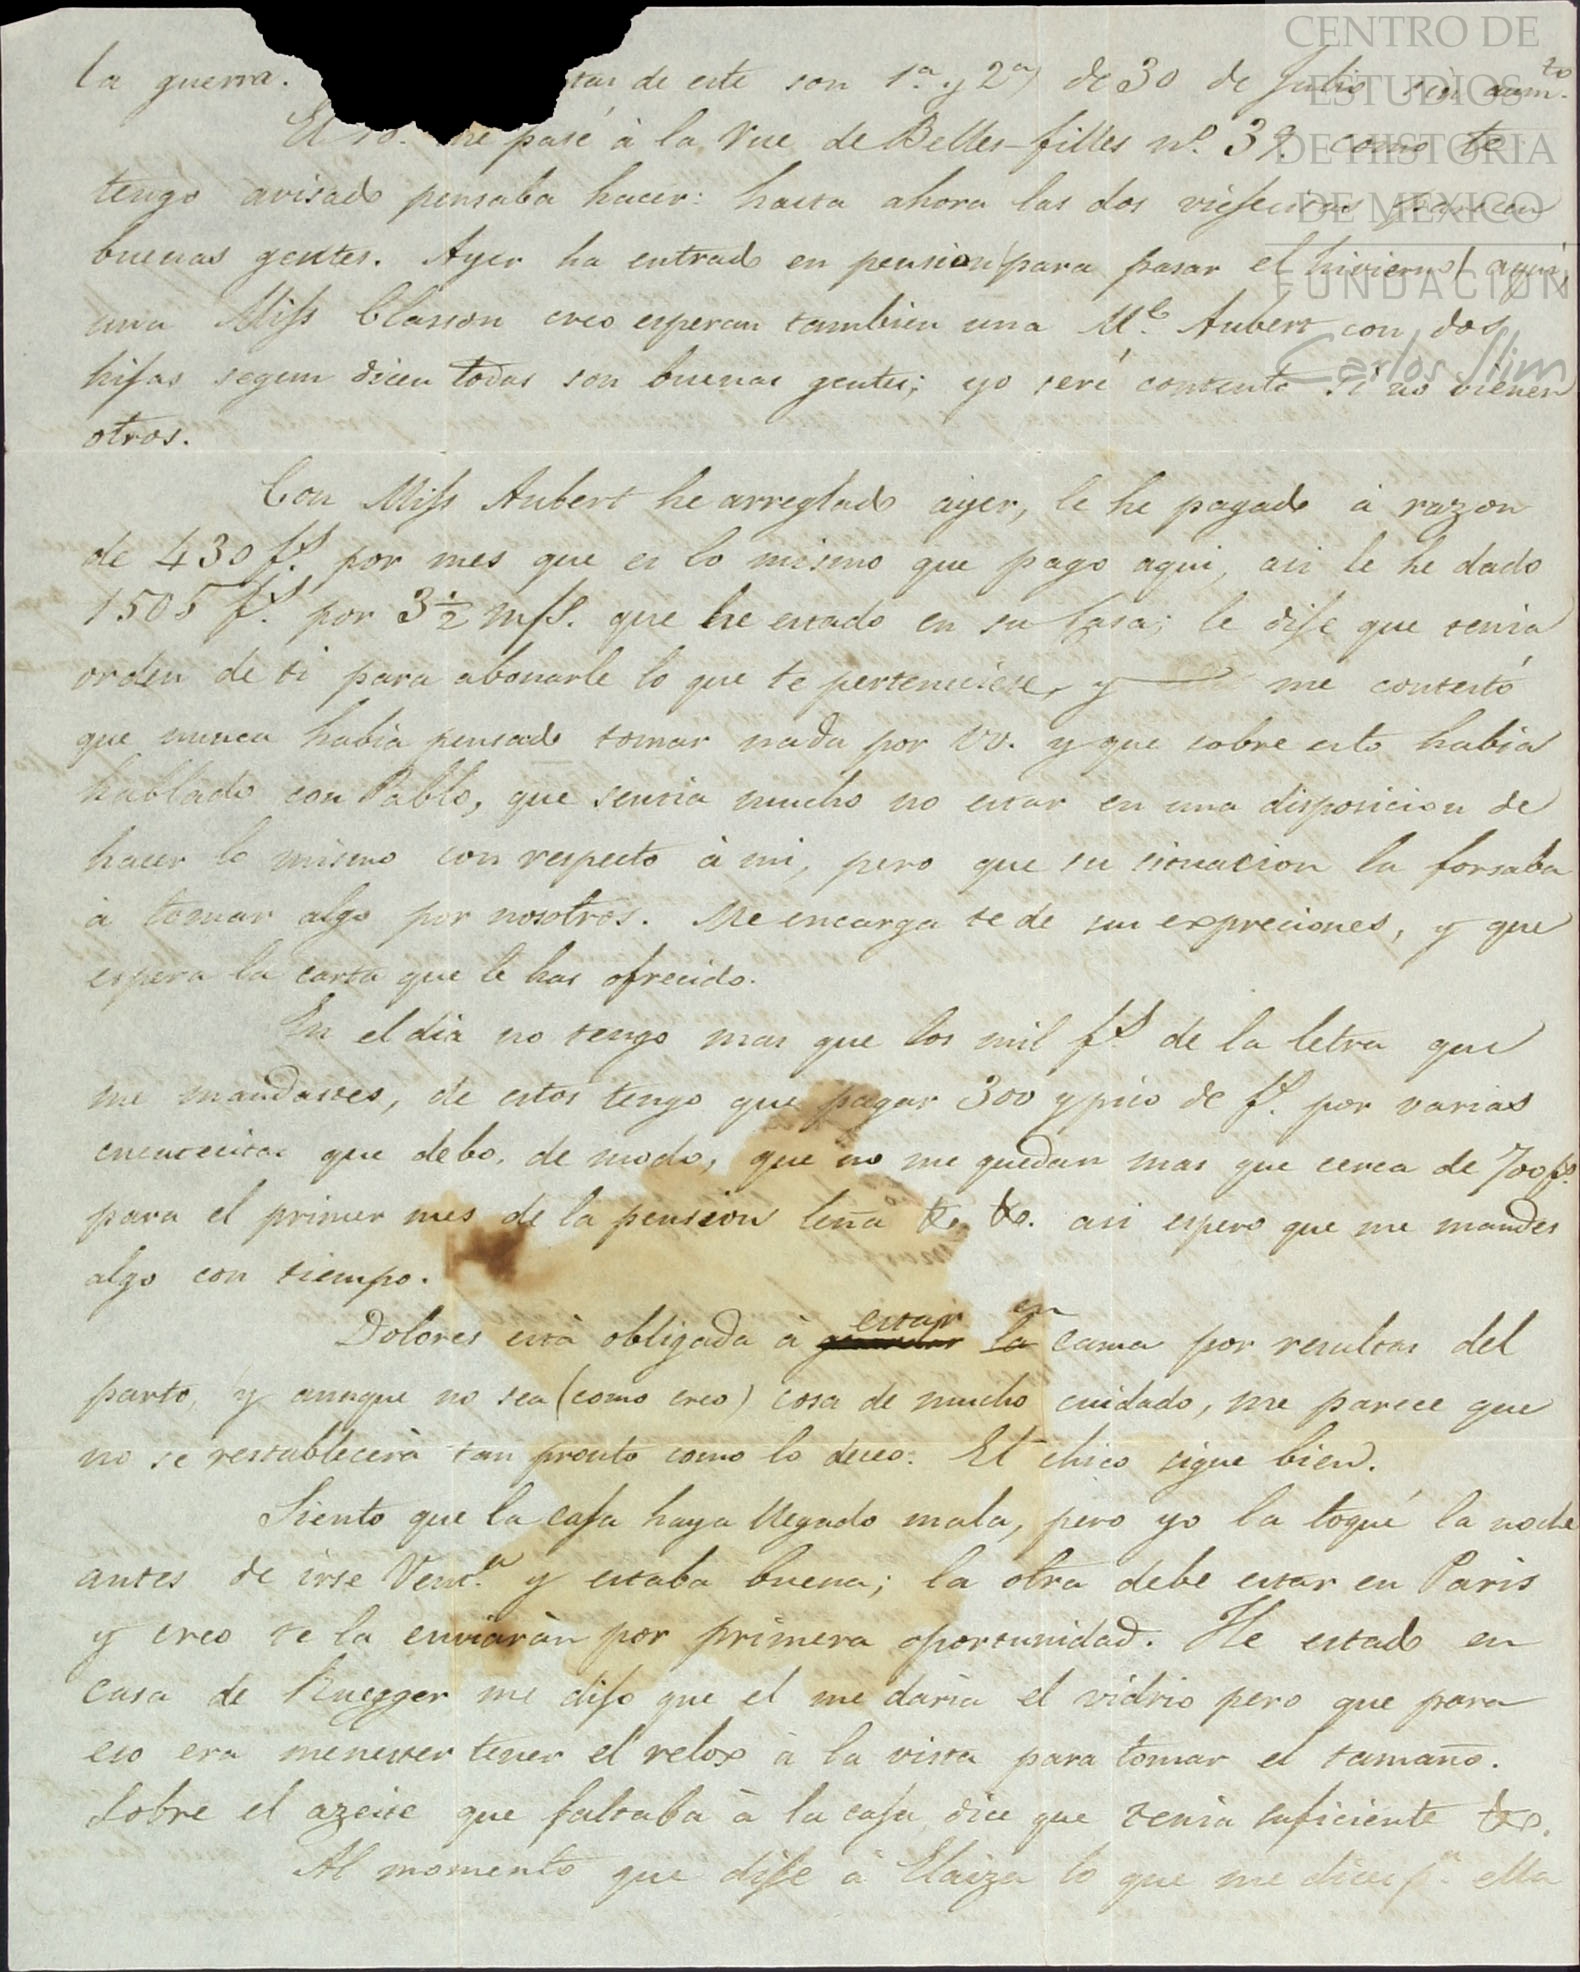 CENTRO DE
ESTUDIOS
DE HISTORIA
DE MÉXICO
FUNDACIÓN
Carlos Slim
la guerra. de este son 1ª y 2ª de 30 de Julio sin aumto.
El me pasé à la Rue de Belles-filles nº. 39. como te
tengo avisado pensaba hacer: hasta ahora las dos viejecitas parecen
buenas gentes. Ayer ha entrado en pension (para pasar el hivierno) aqui,
una Miss Classon creo esperan tambien una Me. Aubert con dos
hijas segun dicen todas son buenas gentes; yo seré contento si no vienen
otros.
Con Miss Aubert he arreglado ayer, le he pagado à razon
de 430 fs. por mes que es lo mismo que pago aqui, asi le he dado
1505 fs. por 3½ mss. que he estado en su Casa; le dije que tenia
orden de ti para abonarle lo que te perteneciese, y me contestó
que nunca habia pensado tomar nada por VV. y que sobre esto habia
hablado con Pablo, que sentia mucho no estar en una disposicion de
hacer lo mismo con respecto à mi, pero que su situacion la forsaba
à tomar algo por nosotros. Me encarga te de sus expreciones, y que
espera la carta que le has ofrecido.
En el dia no tengo mas que los mil fs. de la letra que
me mandastes, de estos tengo que pagar 300 y pico de fs. por varias
cuentecitas que debo, de modo, que no me quedan mas que cerca de 700 fs.
para el primer mes de la pension leña &c. &c. asi espero que me mandes
algo con tiempo.
Dolores està obligada à guardar estar la en cama por resultas del
parto, y aunque no sea (como creo) cosa de mucho cuidado, me parece que
no se restablecerà tan pronto como lo deceo. El chico sigue bien.
Siento que la caja haya llegado mala, pero yo la toqué la noche
antes de irse Vent.a y estaba buena; la otra debe estar en Paris
y creo te la enviaràn por primera oportunidad. He estado en
casa de Ruegger me dijo que el me daria el vidrio pero que para
eso era menester tener el relox à la vista para tomar el tamaño.
Sobre el azeite que faltaba à la caja, dice que tenia suficiente &c.
Al momento que dije à Elaiza lo que me dices pa. ella